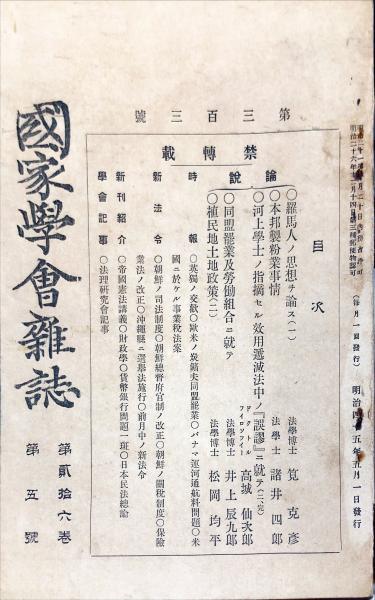 明治二十六年十二月十四日第三種郵便物認可
(毎月一回發行)
明治四十五年五月一日發行
第三百三號
禁轉載
目次
論說
○羅馬人ノ思想ヲ論ス(一)
法學博士 筧克彥
○本邦製粉業事情
法學士 諸井四郎
○河上學士ノ指摘セル効用遞減法中ノ『誤謬』ニ就テ(二、完)
ドクトル、フイロソフイー 高城仙次郎
○同盟罷業及勞働組合ニ就テ
法學博士 井上辰九郎
○植民地土地政策(二)
法學博士 松岡均平
時報
○英獨ノ交歡○歐米ノ炭鑛夫同盟罷業○パナマ運河通航料問題○米
國ニ於ケル事業稅法案
新法令
○朝鮮ノ司法制度○朝鮮總督府官制ノ改正○朝鮮ノ關稅制度○保險
業法ノ改正○沖繩縣ニ選擧法施行○前月中ノ新法令
新刊紹介
○帝國憲法講義○財政學○貨幣銀行問題一班○日本民法總論
學會記事
○法理硏究會記事
國家學會雜誌
第貳拾六卷
第五號